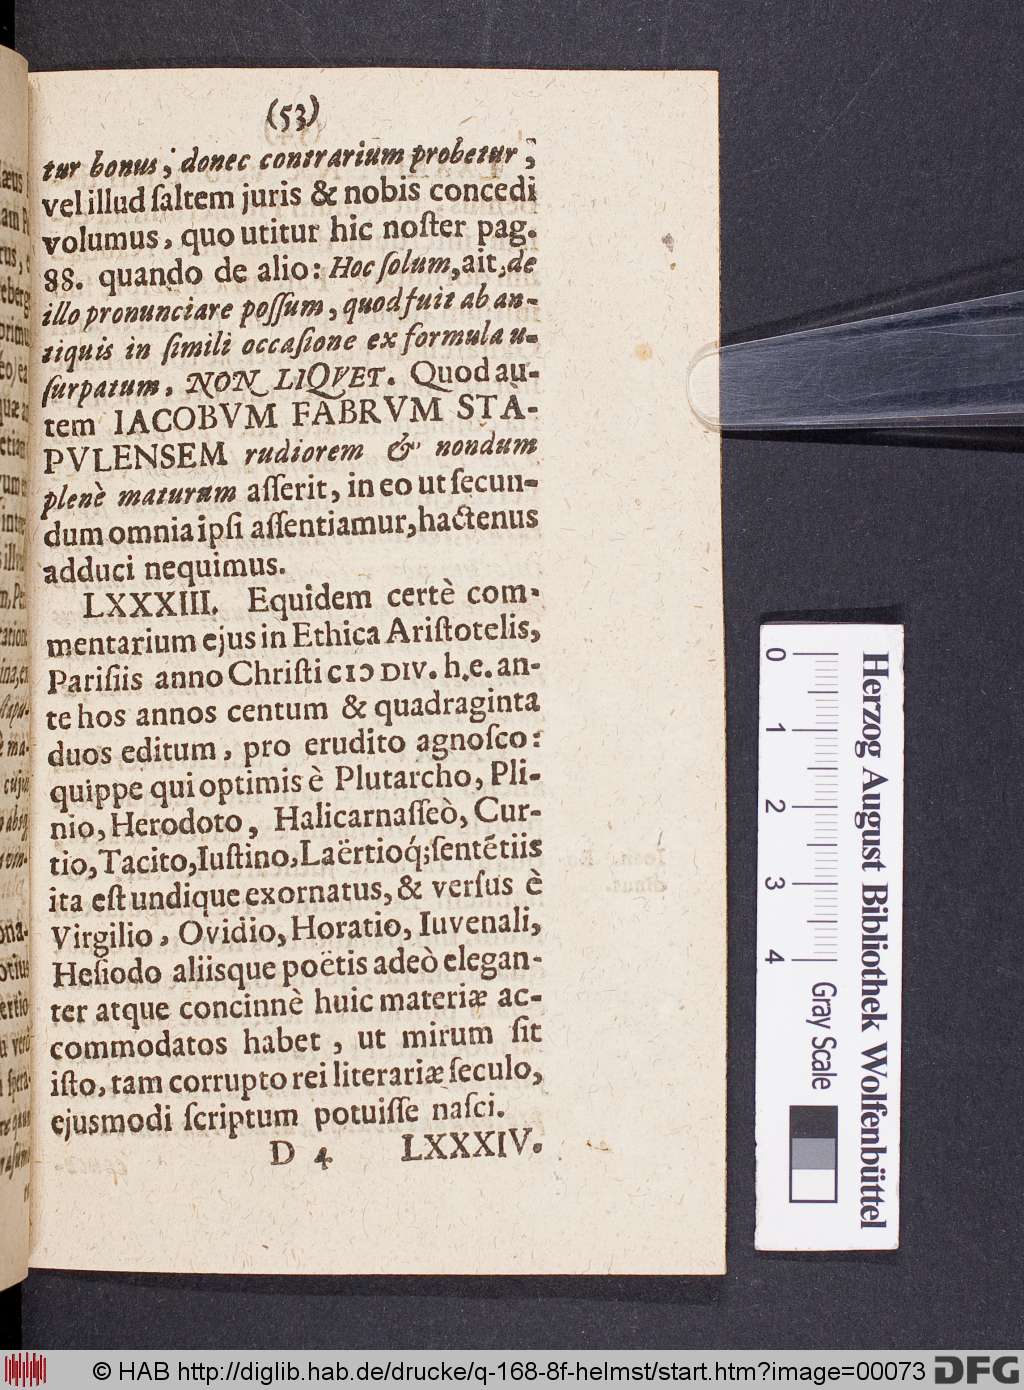 (53)
tur bonus; donec contrarium probetur;
vel illud ſaltem juris & nobis concedi
volumus, quo utitur hic noſter pag.
88. quando de alio: Hoc ſolum, ait, de
illo pronunciare poſſum, quod fuit ab an-
tiquis in ſimili occaſione ex formula u-
ſurpatum, NON LIQVET. Quod au-
tem IACOBVM FABRVM STA-
PVLENSEM rudiorem & nondum
plenè maturum aſſerit, in eo ut ſecun-
dum omnia ipſi aſſentiamur, hactenus
adduci nequimus.
LXXXIII. Equidem certè com-
mentarium ejus in Ethica Ariſtotelis,
Pariſiis anno Chriſti CIↃ DIV. h.e. an-
te hos annos centum & quadraginta
duos editum, pro erudito agnoſco:
quippe qui optimis è Plutarcho, Pli-
nio, Herodoto, Halicarnaſſeò, Cur-
tio, Tacito, Iuſtino, Laërtioq́; ſentẽtiis
ita eſt undique exornatus, & verſus è
Virgilio, Ovidio, Horatio, Iuvenali,
Heſiodo aliisque poëtis adeò elegan-
ter atque concinnè huic materiæ ac-
commodatos habet, ut mirum ſit
iſto, tam corrupto rei literariæ ſeculo,
ejusmodi ſcriptum potuiſſe naſci.
D 4 LXXXIV.
0 1 2 3 4 Gray Scale
Herzog August Bibliothek Wolfenbüttel
© HAB http://diglib.hab.de/drucke/q-168-8f-helmst/start.htm?image=00073
DFG